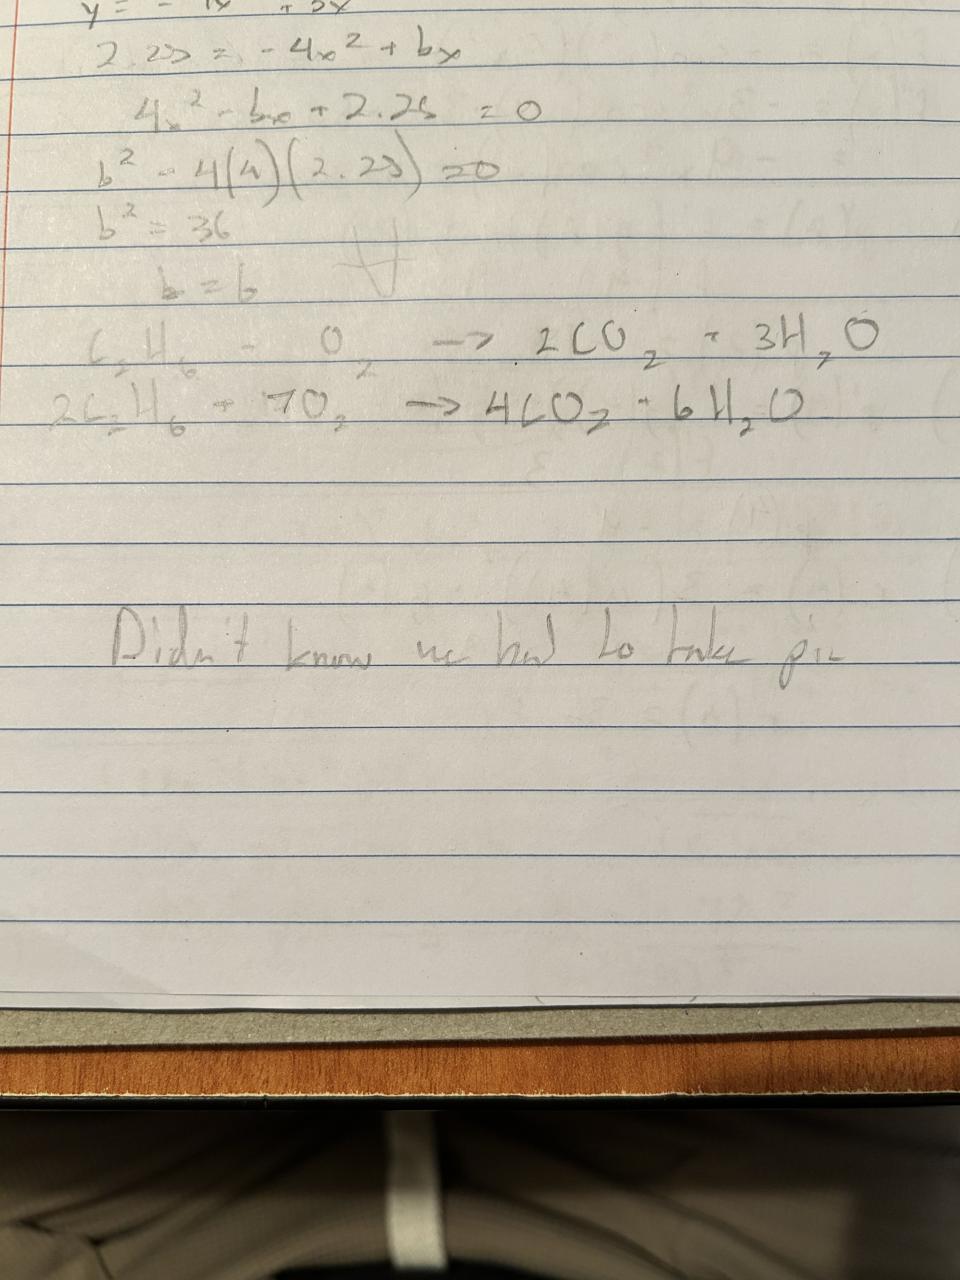 y =
2.25 = -4x² + bx
4x² - bx + 2.25 = 0
b² - 4(4)(2.25) = 0
b² = 36
b = 6
C₂H₆ + O₂ → 2CO₂ + 3H₂O
2C₂H₆ + 7O₂ → 4CO₂ + 6H₂O
Didn't know we had to take pic